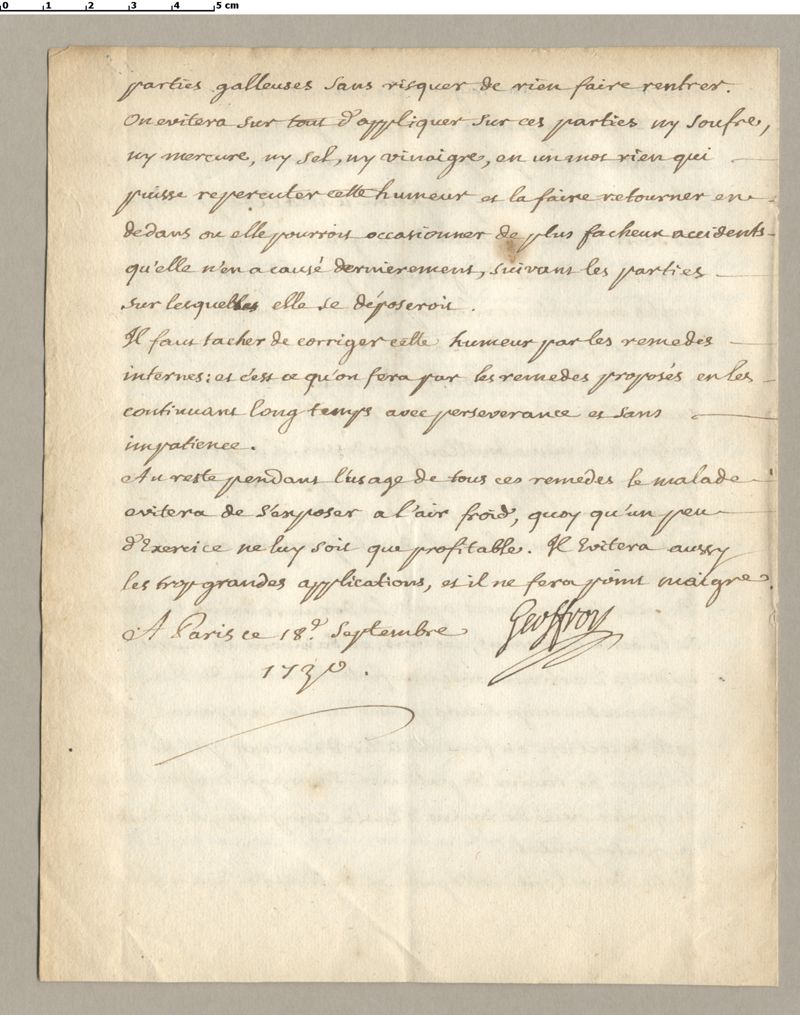 0 1 2 3 4 5 cm
parties galleuses sans risquer de rien faire rentrer.
On evitera sur tout d'appliquer sur ces parties ny soufre,
ny mercure, ny sel, ny vinaigre, en un mot rien qui
puisse repercuter cette humeur et la faire retourner en
dedans ou elle pourroit occasionner de plus facheux accidents
qu'elle n'en a causé dernierement, suivant les parties
sur lesquelles elle se déposeroit.
Il faut tacher de corriger cette humeur par les remedes
internes: et c'est ce qu'on fera par les remedes proposés en les
continuant long temps avec perseverance et sans
impatience.
Au reste pendant l'usage de tous ces remedes le malade
evitera de s'exposer a l'air froid, quoy qu'un peu
d'Exercice ne luy soit que profitable. Il Evitera aussy
les trop grandes applications, et il ne fera point maigre.
A Paris ce 18.e Septembre Geoffroy
1730.